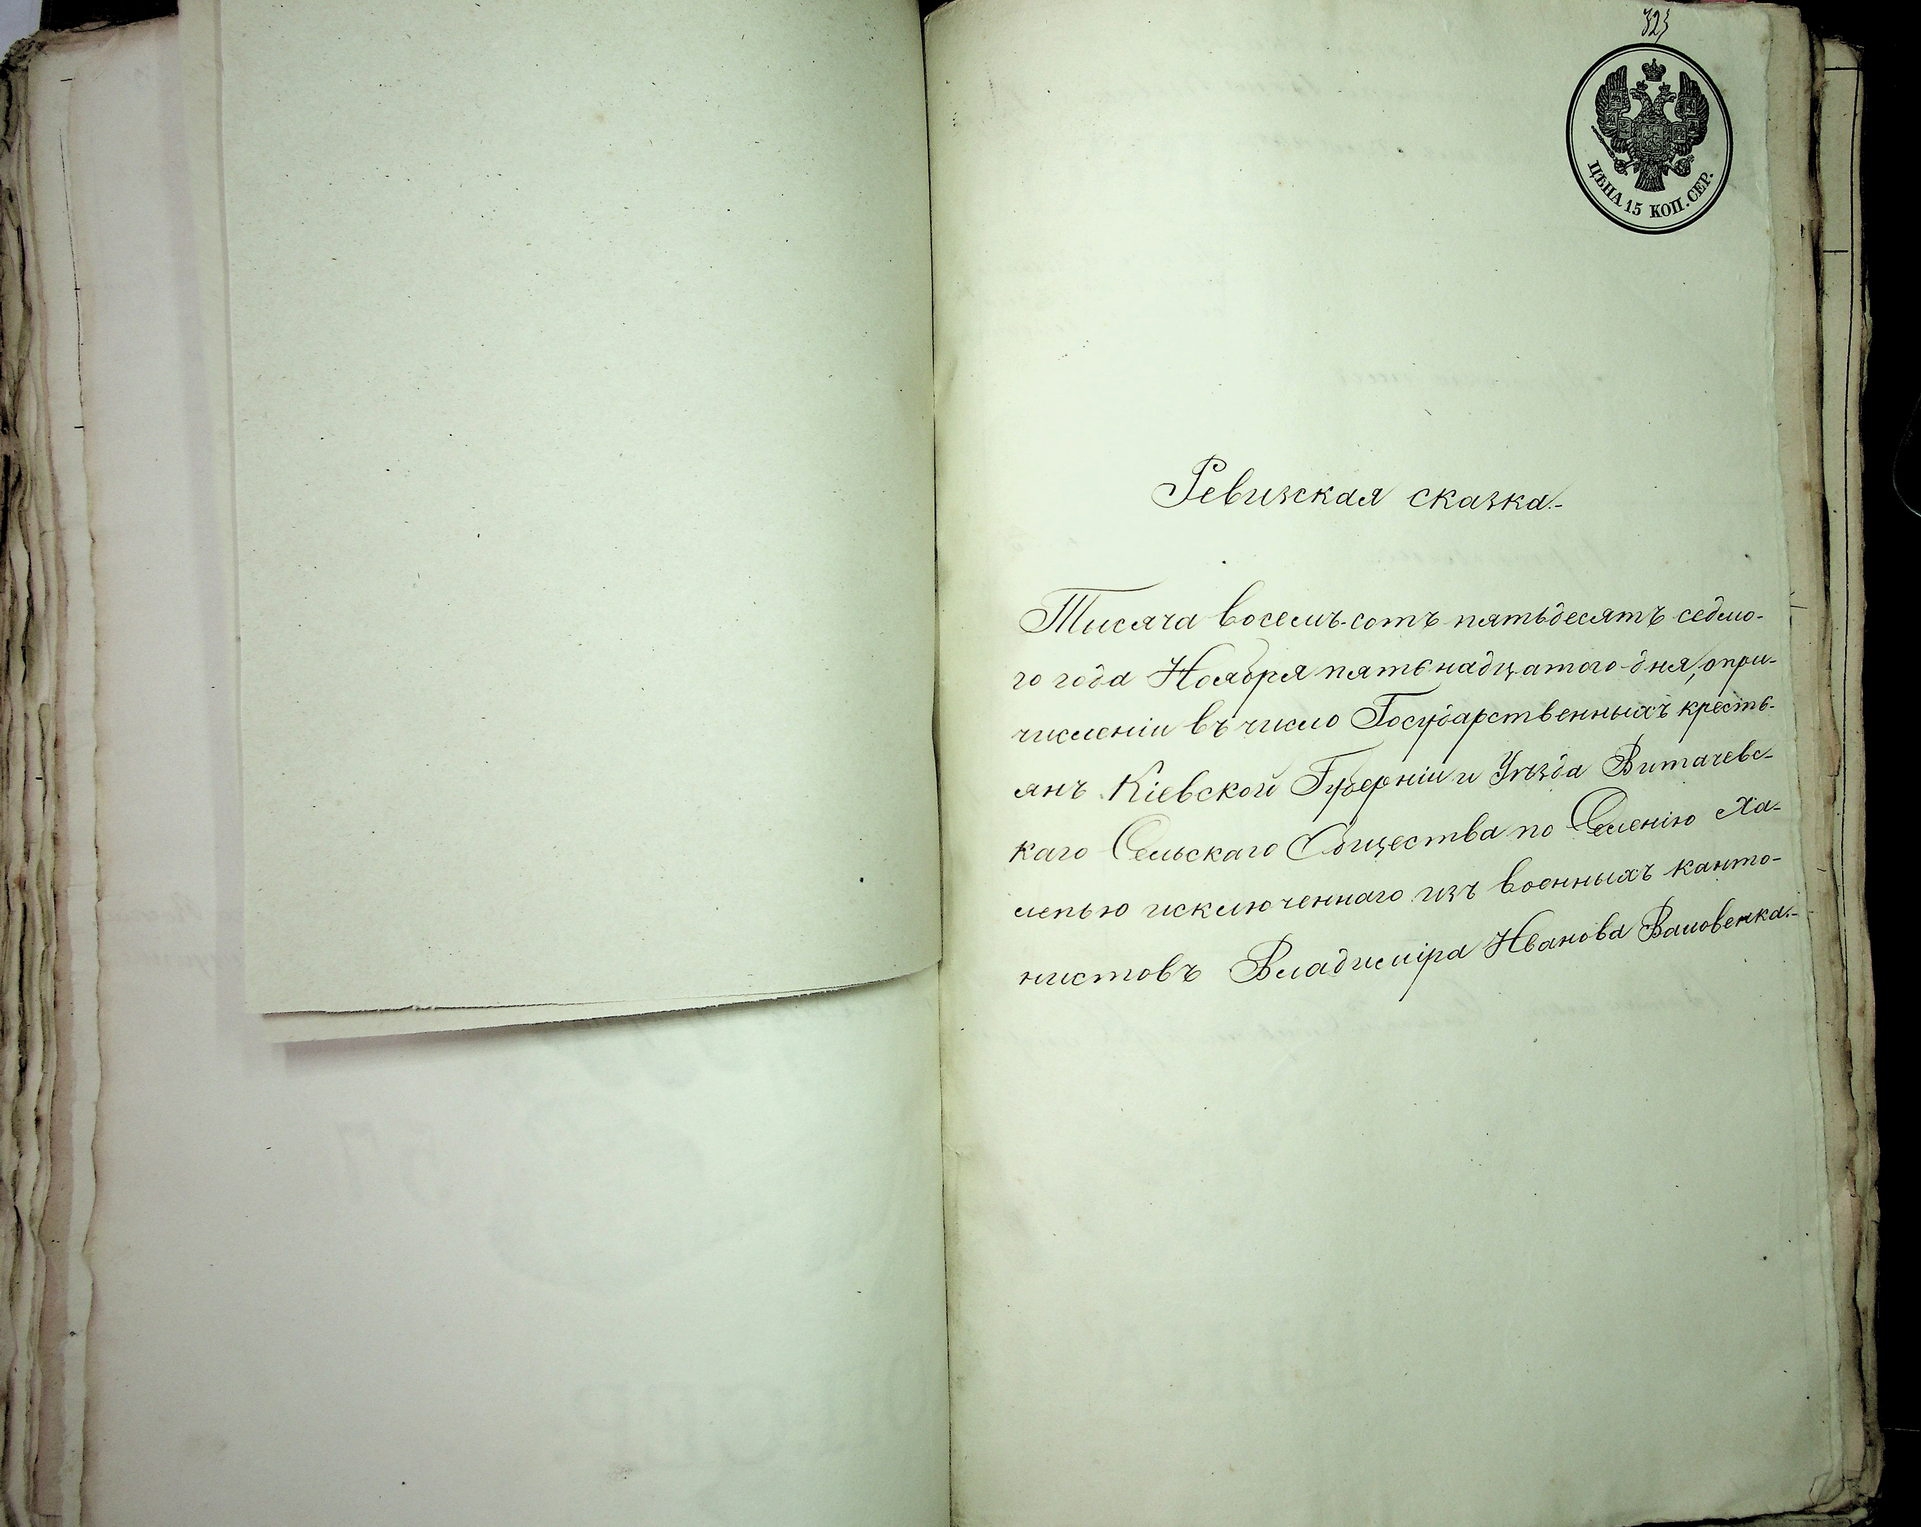 323
ЦѢНА 15 КОП. СЕР.
Ревизская сказка.-
Тисяча восемь-сотъ пятьдесятъ седмо-
го года Ноября пятьнадцатого дня, опри-
численіи въ число Государственныхъ кресть-
янъ Кіевской Губерніи и Уѣзда Витачевс-
каго Сельскаго Общества по Селенію Ха-
лепью исключеннаго изъ военныхъ канто-
нистовъ Владиміра Иванова Валовенка.-